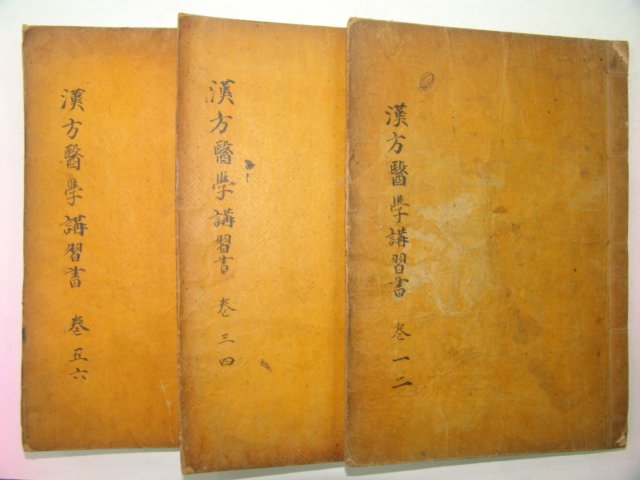 漢方醫學講習書 卷一二
漢方醫學講習書 卷三四
漢方醫學講習書 卷五六